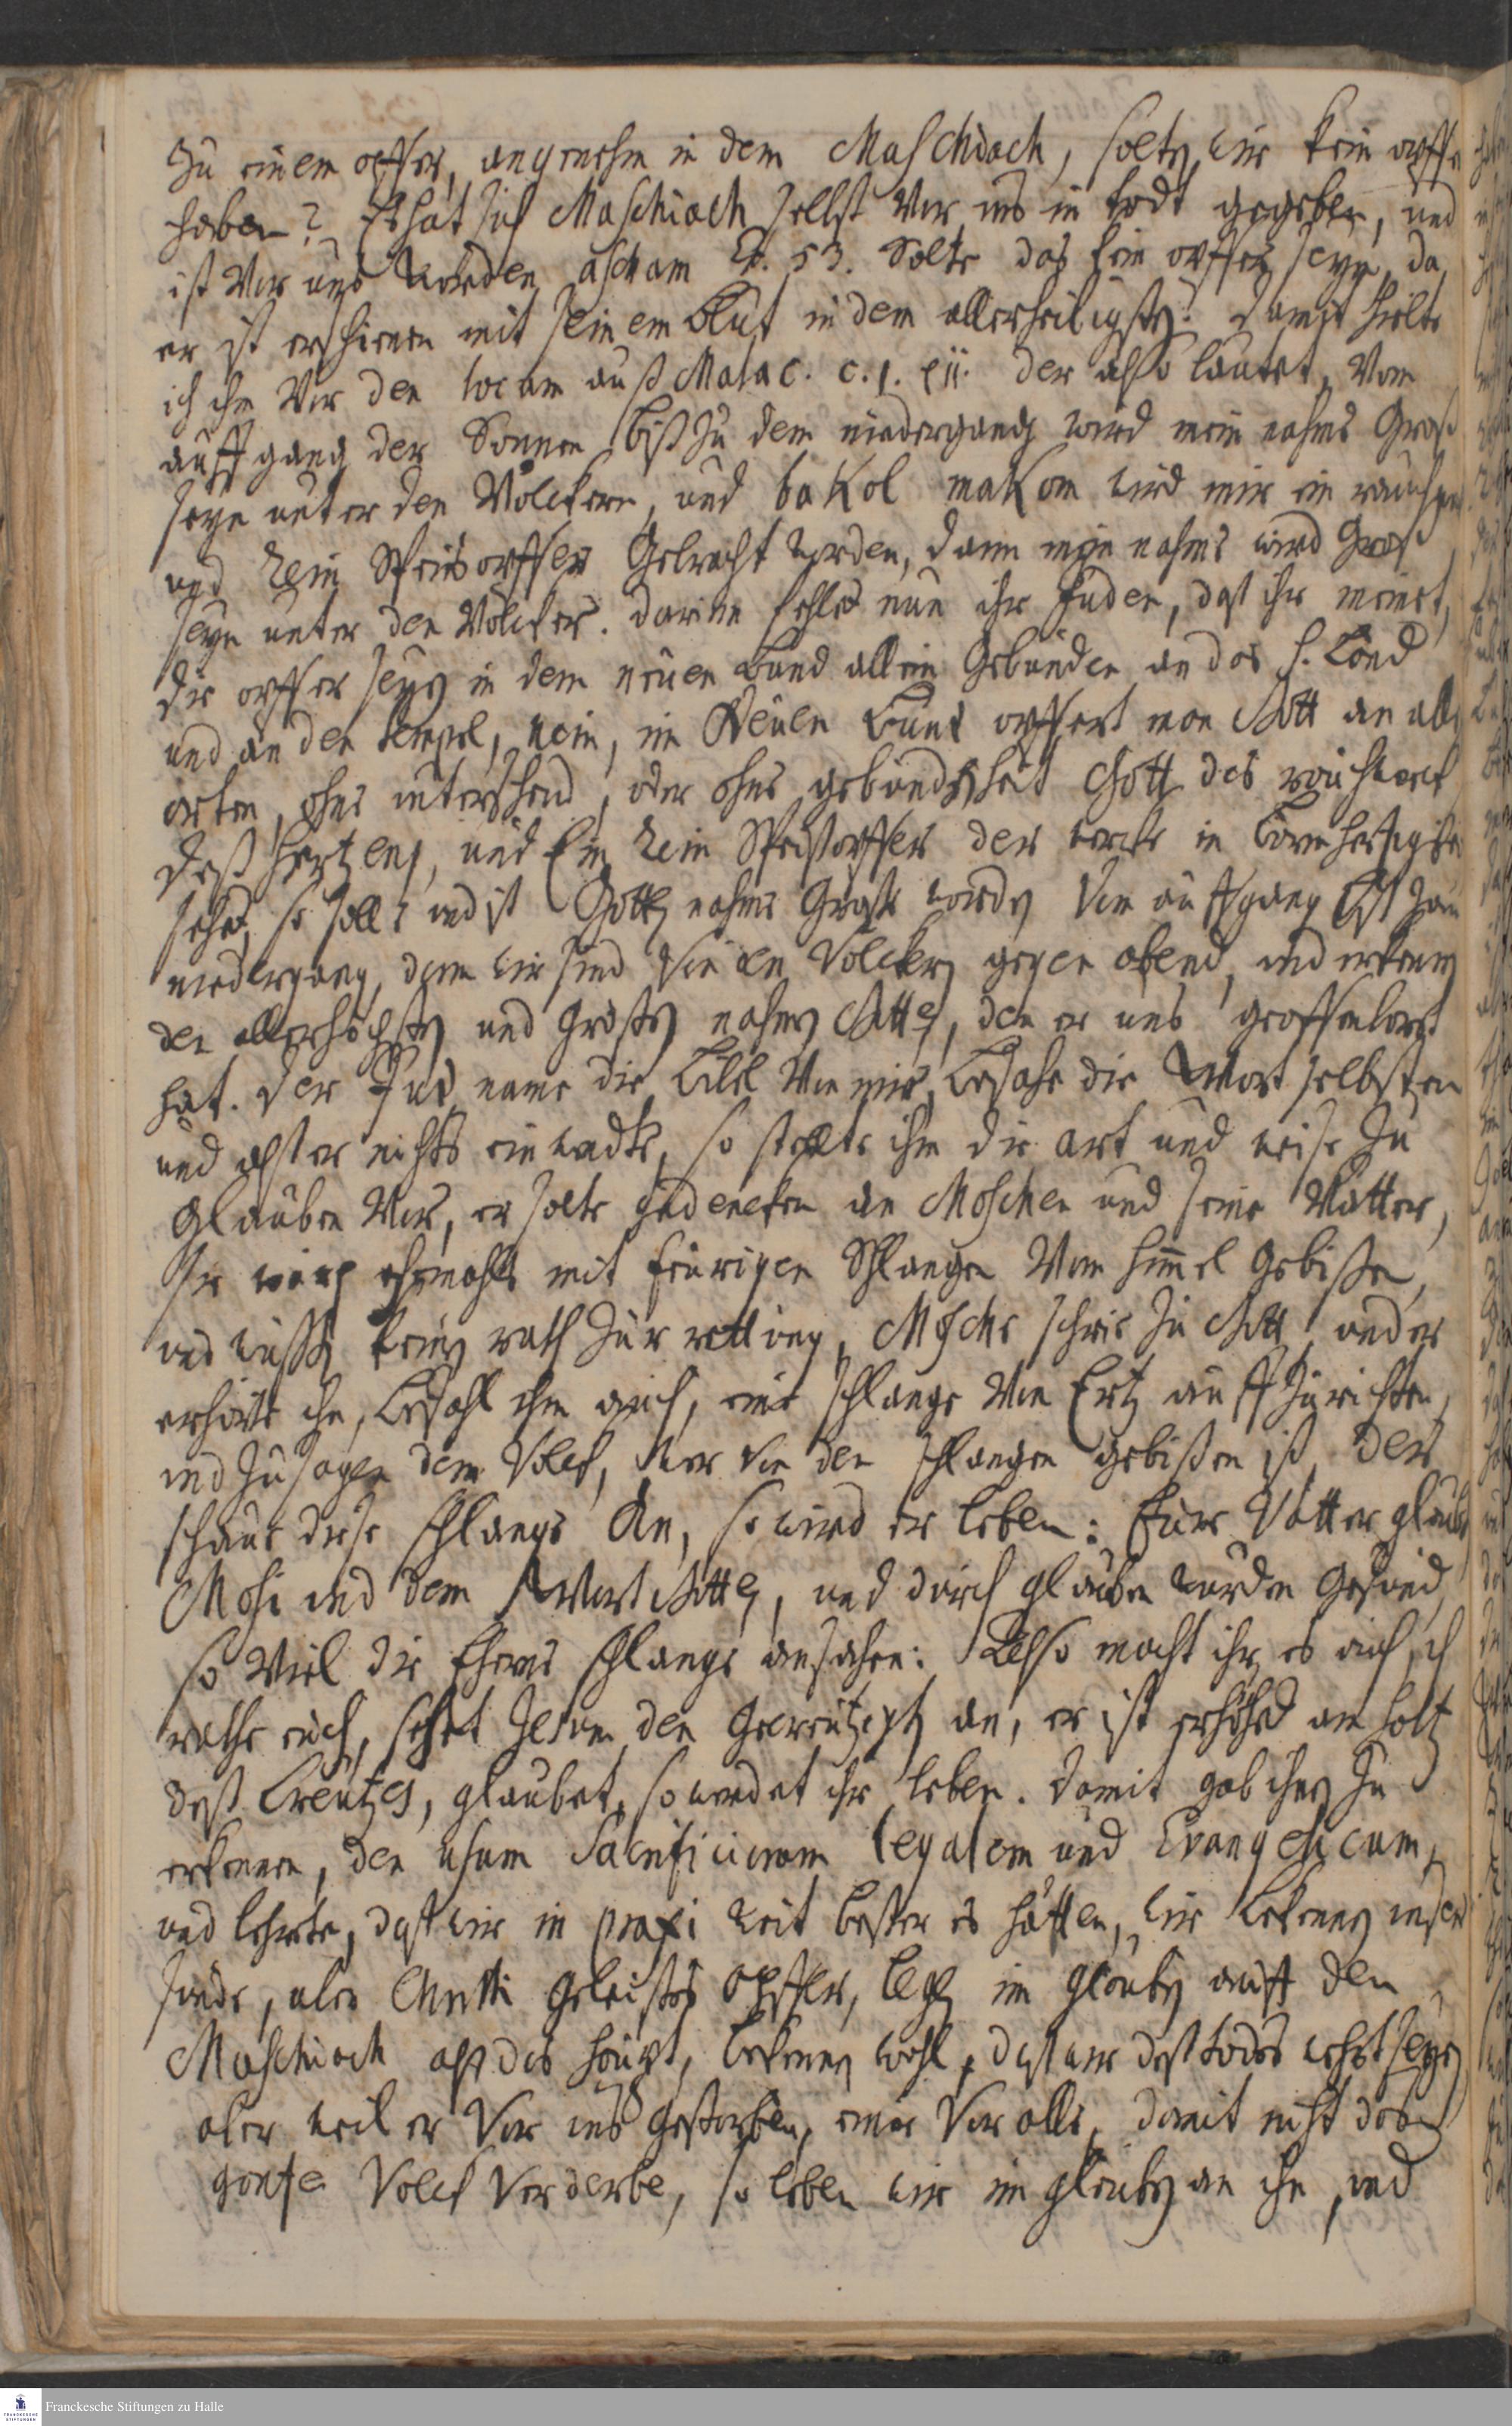 zu einem opffer, angenehm in dem Maschiach, solten wir kein opffer
haben? Es hat sich Maschiach selbst vor uns in todt gegeben, und
ist vor uns worden ascham Es. 53. Solte das kein opffer seyn, da
er ist erschienen mit seinem Blut in dem allerheiligsten? Damit hielte
ich ihm vor den locum auß Malac. c. 1. v. 11. der also lautet, Vom
auffgang der Sonnen biß zu dem niedergang wird mein nahme Groß
seyn unter den Völckern, und bakol makom wird mir ein rauchen
und rein Speisopffer Gebracht werden, dann mein nahme wird Groß
seyn unter den Völcker. darinn fehlet nun ihr Juden, daß ihr meinet,
die opffer seyen in dem neuen Bund allein Gebunden an das h. Land
und an den tempel, nein, im Neuen Bund opffert man Gott an allen
orten, ohne unterscheid, oder ohne gebundenheit Gott das rauchwerck
deß hertzens, und Ein rein Speisopffer der wercke in Barmhertzigkeit
sehet, so solle und ist Gottes nahme Groß worden Von auffgang biß zum
niedergang, dann wir sind von den Völckern gegen abend, und erkennen
den allerhöchsten und Großen nahmen Gottes, den er uns geoffenbart
hat. Der Jud name die Bibel Von mir, besahe die Wort selbsten
und als er nichts einwandte, so stellte ihm die art und weise zu
Glauben Vor, er solte gedencken an Moschen und seine Vätter,
Sie waren ehemahls mit feurigen Schlangen Vom himmel Gebißen,
und wusten keinen rath zur rettung, Mosche schrie zu Gott, und er
erhörte ihn, befahl ihm auch, eine schlange Von Ertz auffzurichten,
und zu sagen dem Volck, Wer von den schlangen gebißen ist, der
schaue diese schlange An, so wird er leben: Eure Vätter glaubten
Mosi und dem Wort Gottes, und durch glauben wurden Gesund,
so Viel die Eherne schlange ansahen: Also macht ihr es auch, ich
rathe euch, sehet Jesum den Gecreutzigten an, er ist erhöhet am holtz
deß Creutzes, glaubet, so werdet ihr leben. Damit gab ihnen zu
erkennen, den usum Sacrificiorum legalem und Evangelicum,
und lehrte, daß wir in praxi weit beßer es hätten, wir bekennen unsere
sünde, aber Christi geleistes Opffer, legen im glauben auff den
Maschiach alß das haupt, bekennen wohl, daß wir deß todes wehrt seyen
aber weil er Vor uns gestorben, einer Vor alle, damit nicht das
gantze Volck Verderbe, so leben wir im glauben an ihn, und
Franckesche Stiftungen zu Halle